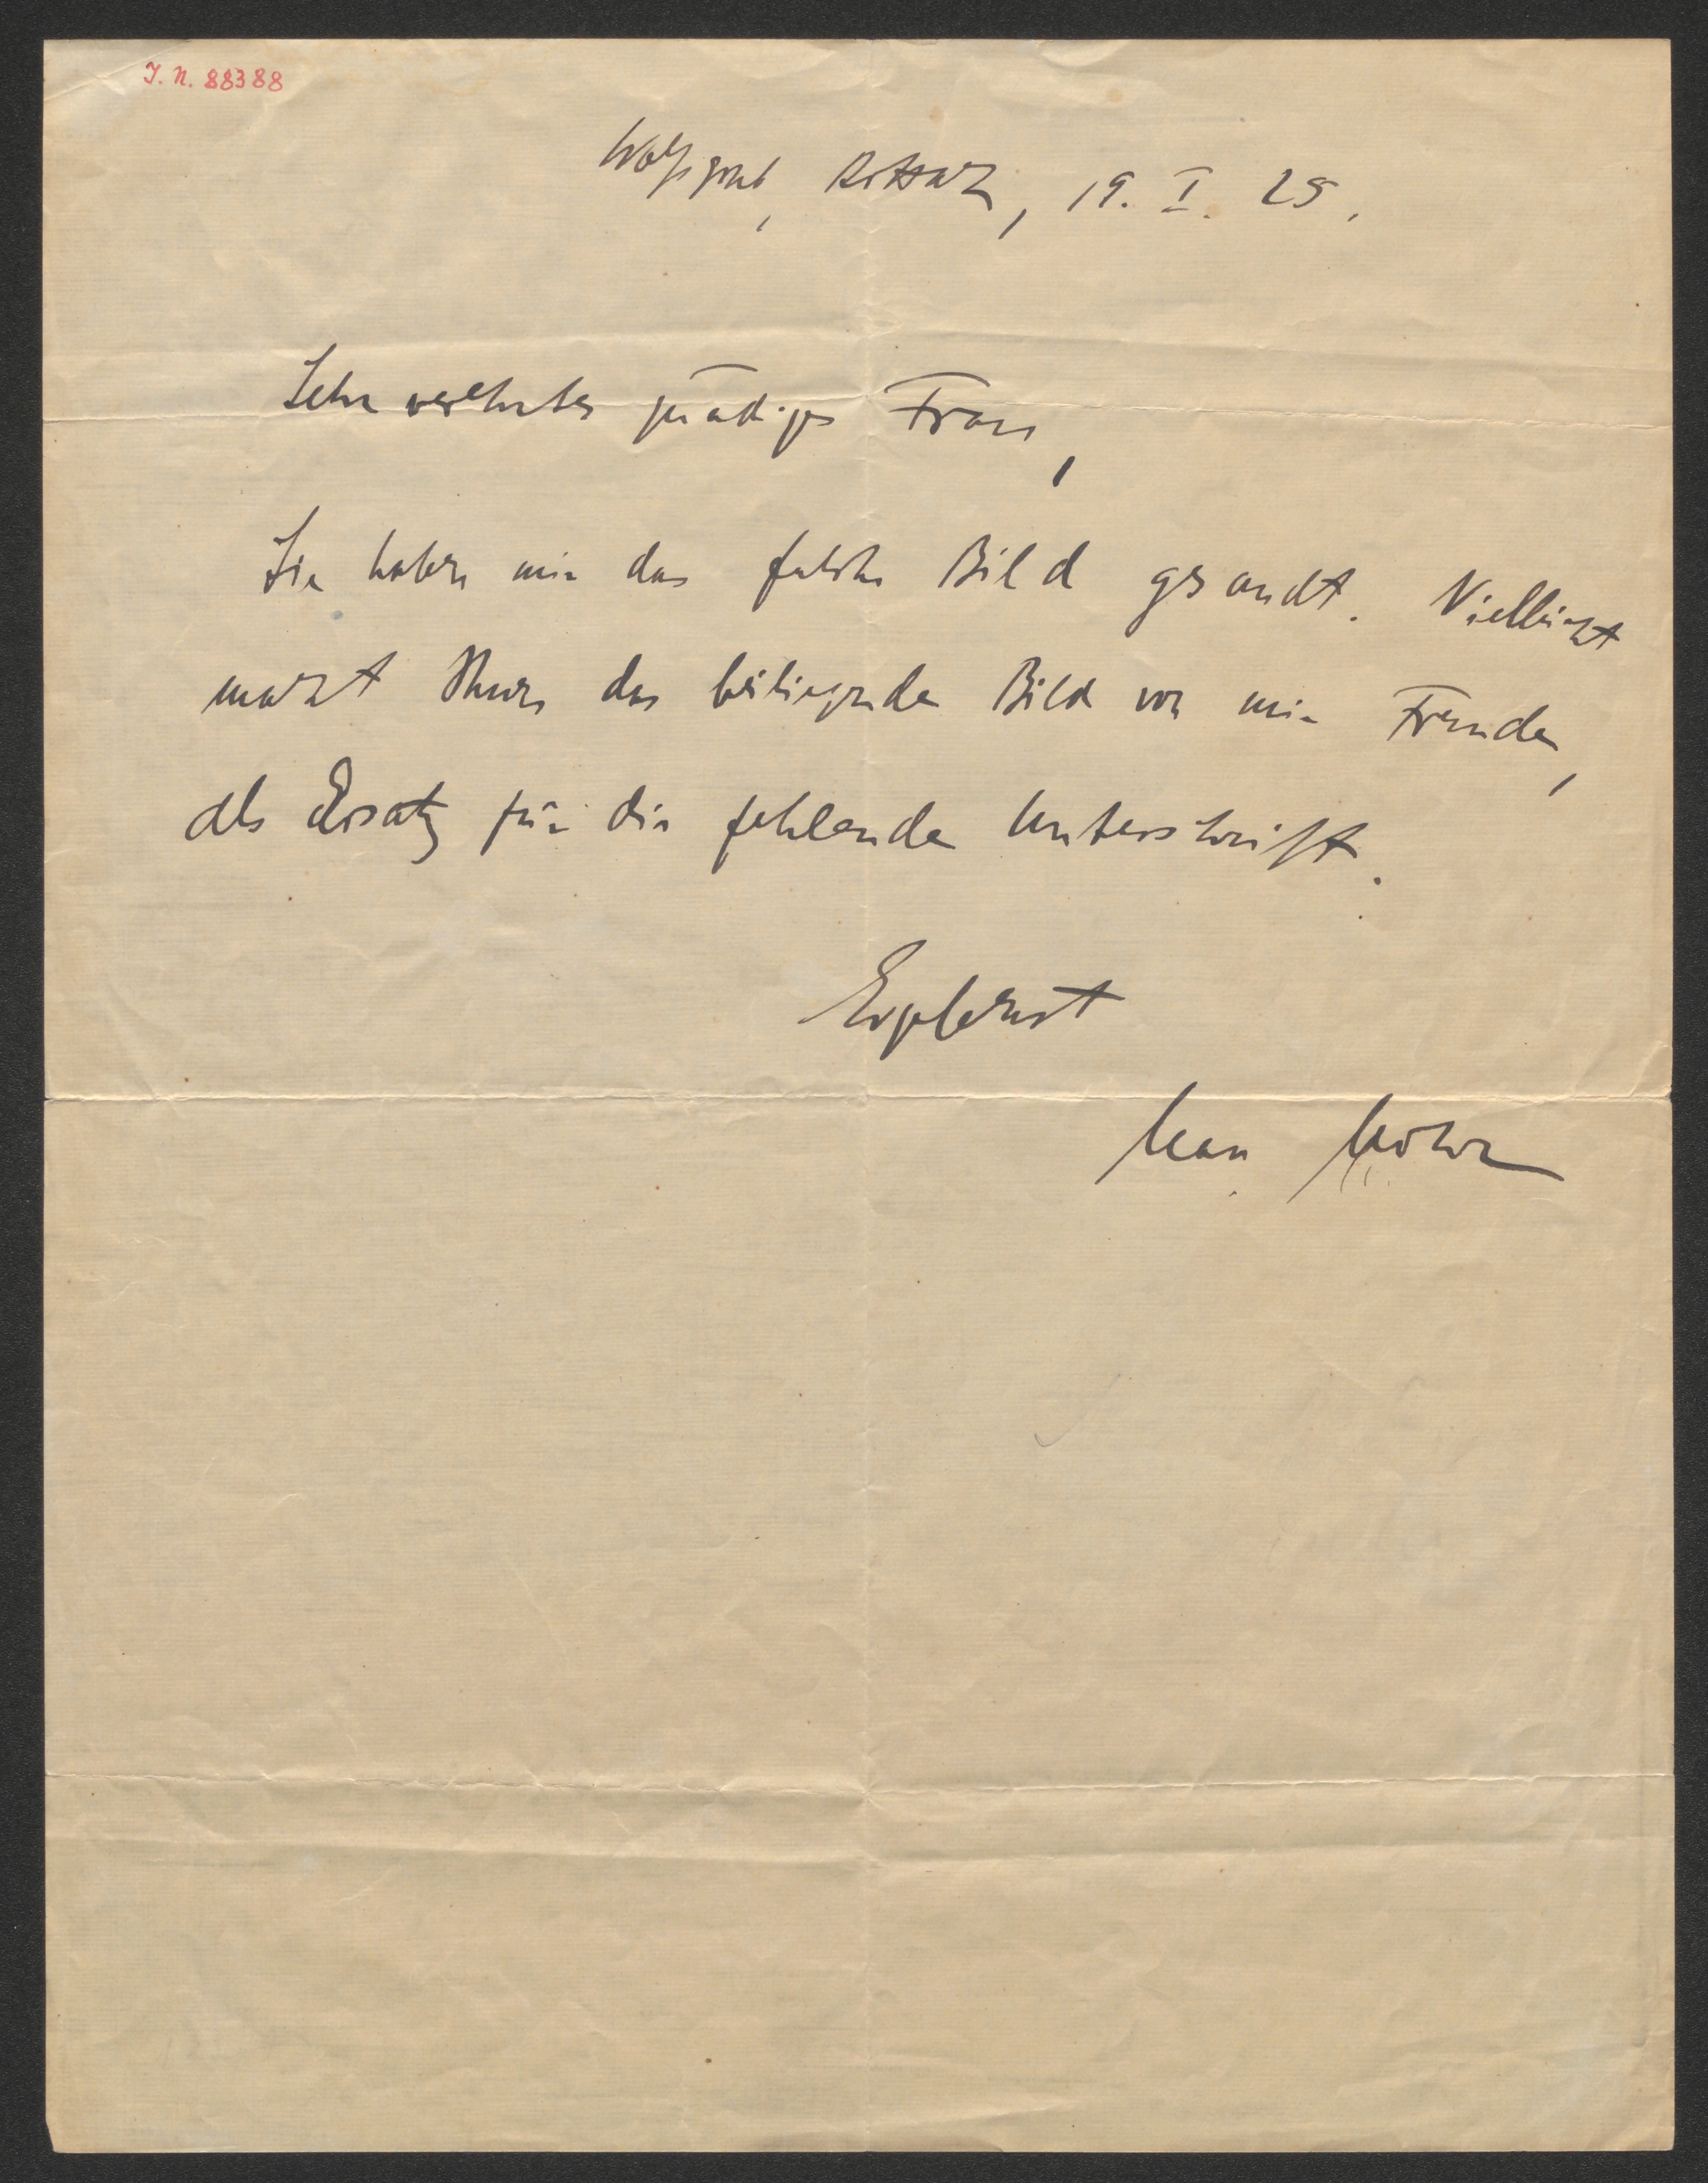 I. N. 88388
Wolfsgrub, Rottach, 19. I. 29.
Sehr verehrte gnädige Frau,
Sie haben mir das falsche Bild gesandt. Vielleicht
macht Ihnen das beiliegende Bild von mir Freude,
als Ersatz für die fehlende Unterschrift.
Ergebenst
Max Mohr